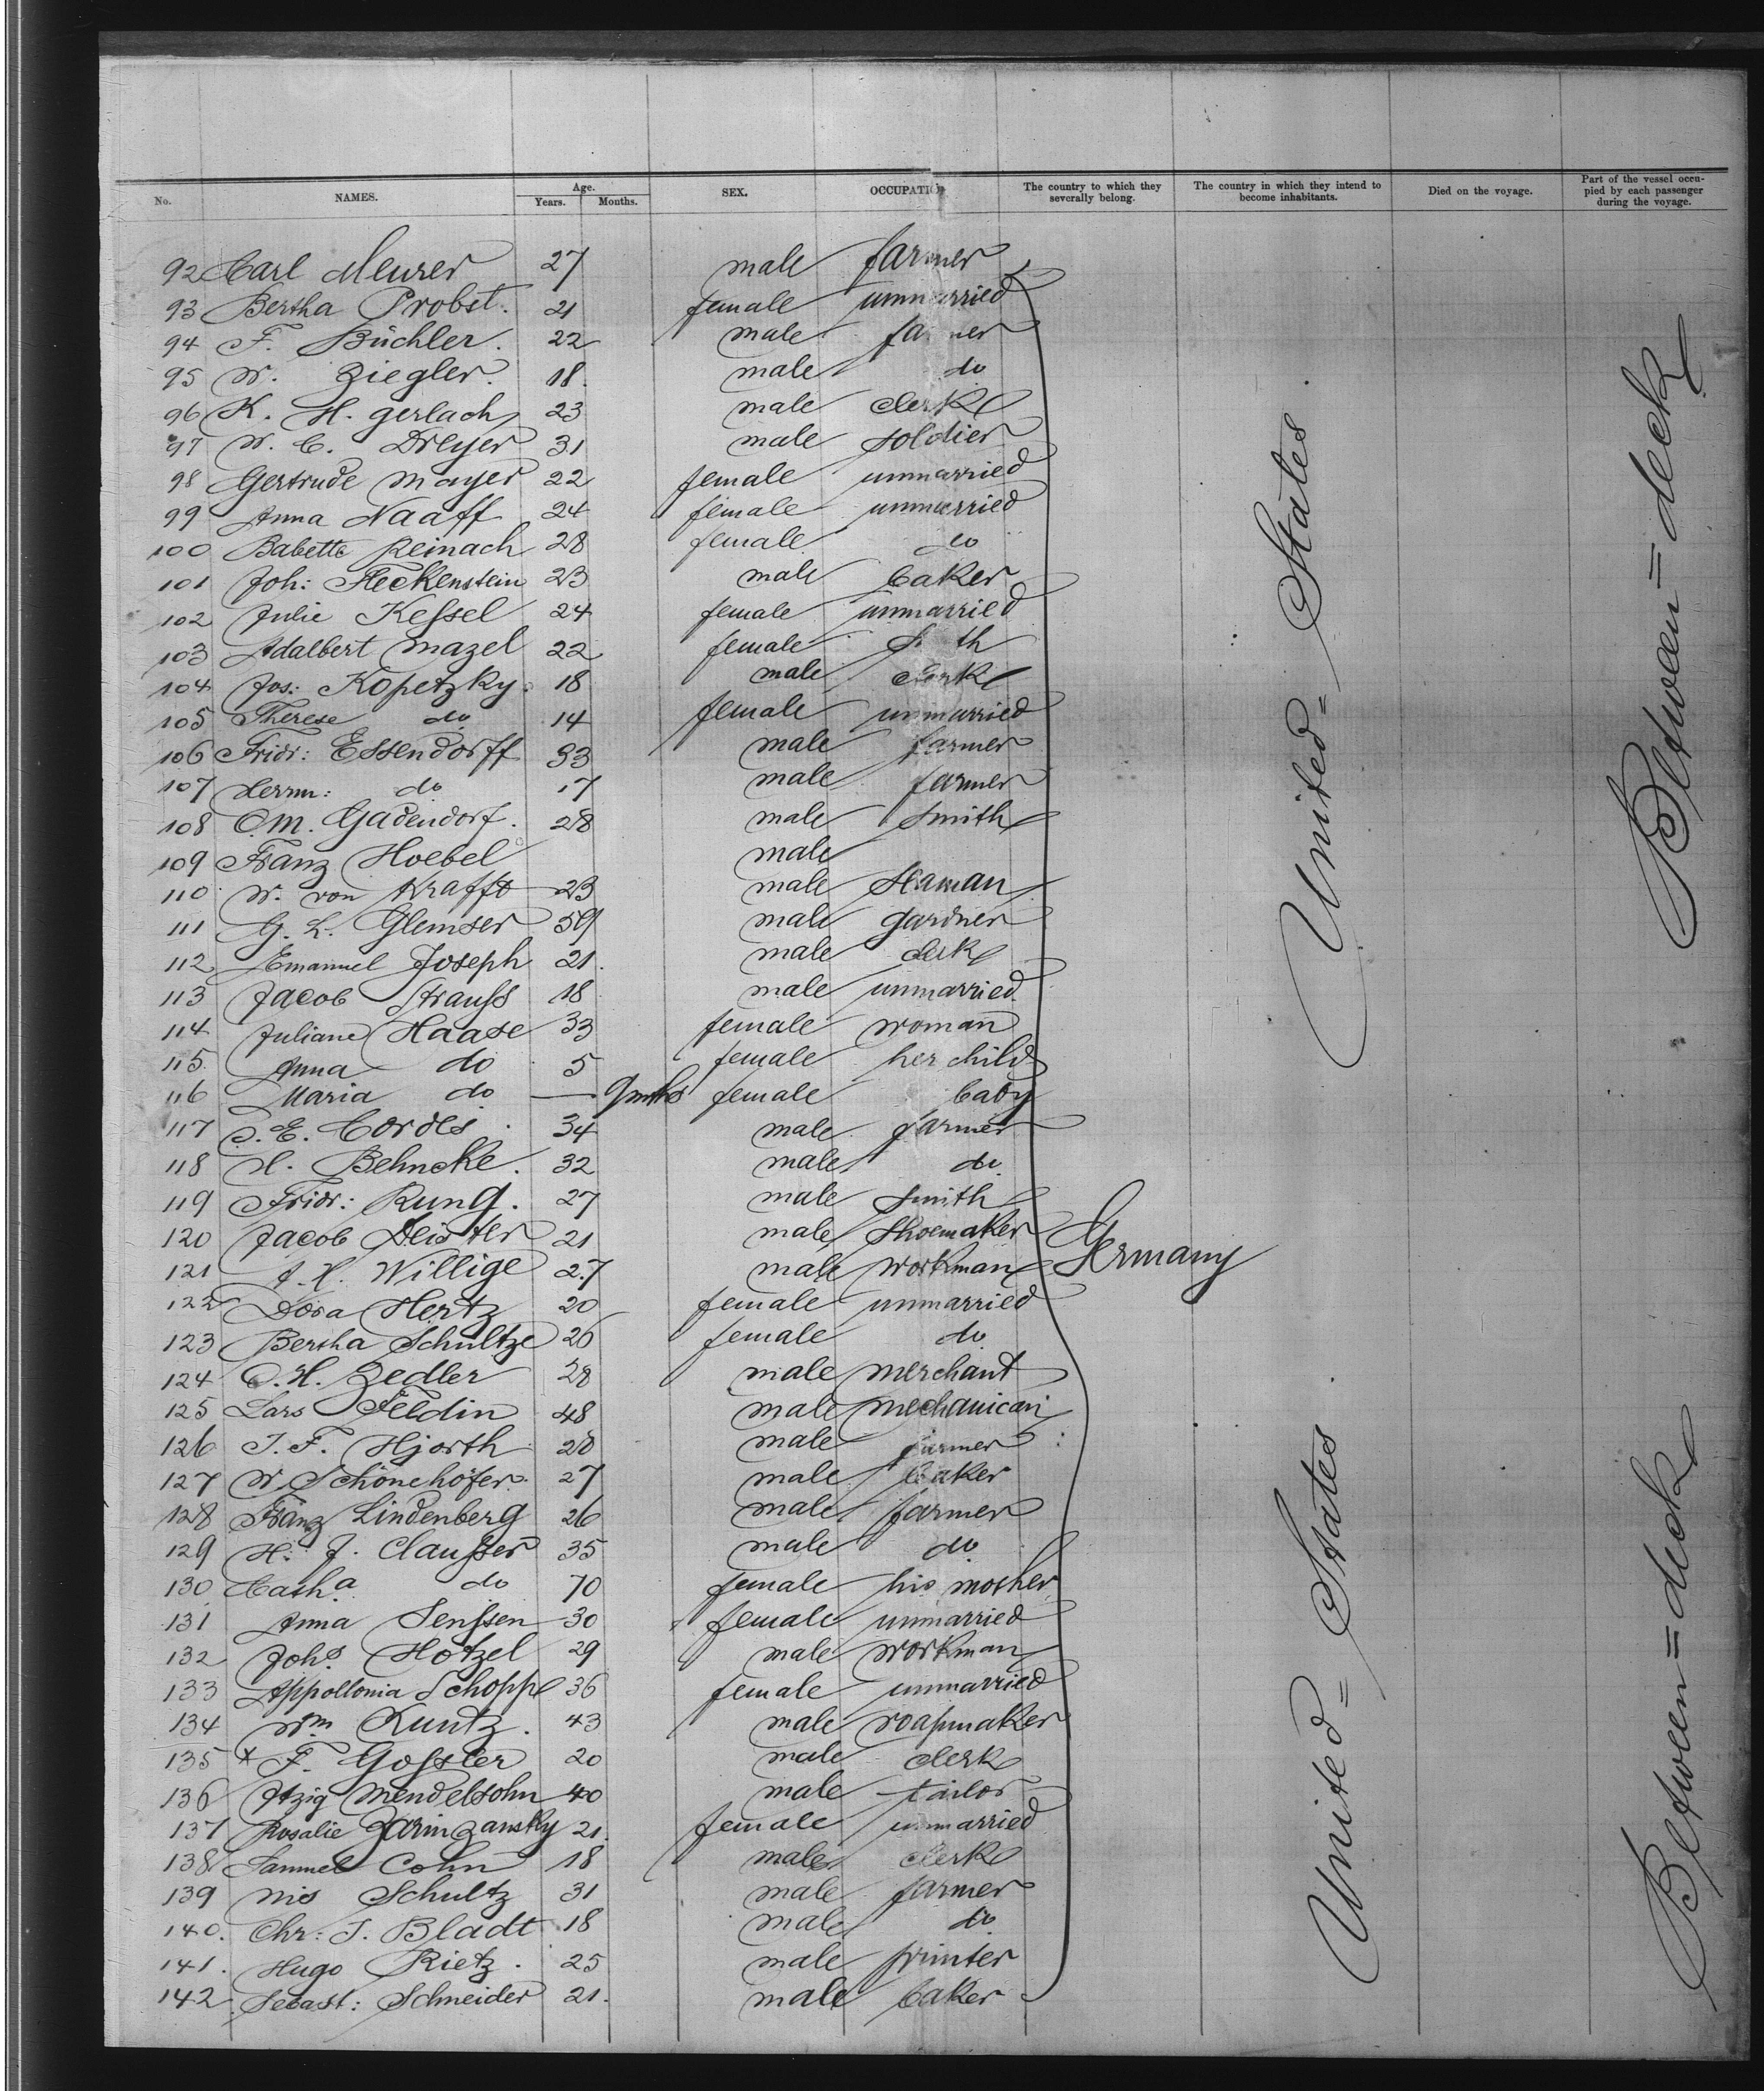 No. NAMES. Age. Years. Months. SEX. OCCUPATION The country to which they severally belong. The country in which they intend to become inhabitants. Died on the voyage. Part of the vessel occupied by each passenger during the voyage.
92 Carl Meurer 27 male farmer
93 Bertha Probst. 21 female unmarried
94 F. Büchler. 22 male farmer
95 W. Ziegler. 18. male do
96 K. H. Gerlach 23 male clerk
97 W. C. Dreyer 31 male soldier
98 Gertrude Mayer 22 female unmarried
99 Anna Naaff 24 female unmarried
100 Babette Reinach 28 female do
101 Joh: Fleckenstein 23 male baker
102 Julie Keßel 24 female unmarried
103 Adalbert Mazel 22 female
104 Jos: Kopetzky. 18 male clerk
105 Therese do 14 female unmarried
106 Fridr: Essendorff 33 male farmer
107 Herrm: do 17 male farmer
108 C. M. Gadendorf. 28 male smith
109 Franz Hoebel male
110 W. von Krafft 23 male seaman
111 G. L. Glemser 59 male gardner
112 Emanuel Joseph 21. male clerk
113 Jacob Strauß 18 male unmarried.
114 Juliane Haase 33 female woman
115. Anna do 5 female her child
116 Maria do — 9 mths female baby
117 J. E. Cordes. 34 male farmer
118 H. Behncke. 32 male do
119 Fridr: Rung. 27 male smith
120 Jacob Deister 21 male shoemaker
Germany
121 A. H. Willige 27 male workman
122 Dora Hertz 20 female unmarried
123 Bertha Schultze 26 female do
124 C. H. Zedler 28 male merchant
125 Lars Feldin 48 male mechanican
126 J. F. Hjorth 28 male farmer
127 W. Schönehöfer. 27 male baker
128 Franz Lindenberg 26 male farmer
129 H: J. Claußer 35 male do
130 Catha do 70 female his mother
131 Anna Senßen 30 female unmarried
132 Johs Hotzel 29 male workman
133 Appollonia Schoppe 36 female unmarried
134 Wm Kuntz. 43 male roapmaker
135 * F. Goßler 20 male clerk
136 Itzig Mendelsohn 40 male tailor
137 Rosalie 21. female unmarried
138 Samuel Cohn 18 male clerk
139 Nis Schultz 31 male farmer
140. Chr: J. Bladt 18 male do
141. Hugo Rietz. 25 male printer
142 Sebast: Schneider 21. male baker
United=States
United=States
Between=deck
Between=deck